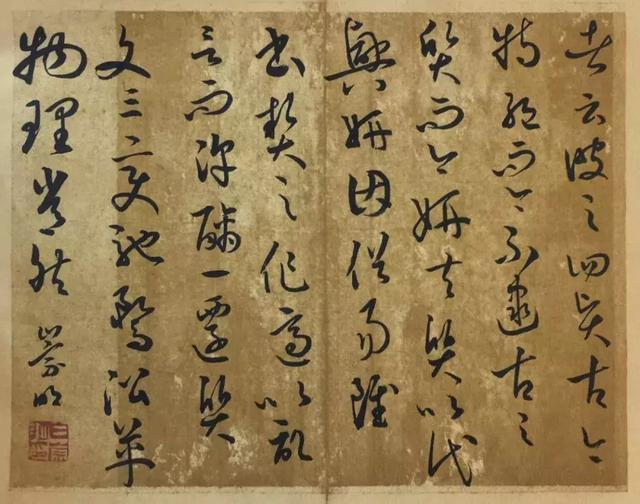 者云彼之四賢古今
特絕而今不逮古々
質而今妍夫質以代
興妍因俗易雖
書契之作適以記
言而淳醨一遷質
文三變馳騖沿革
物理常然